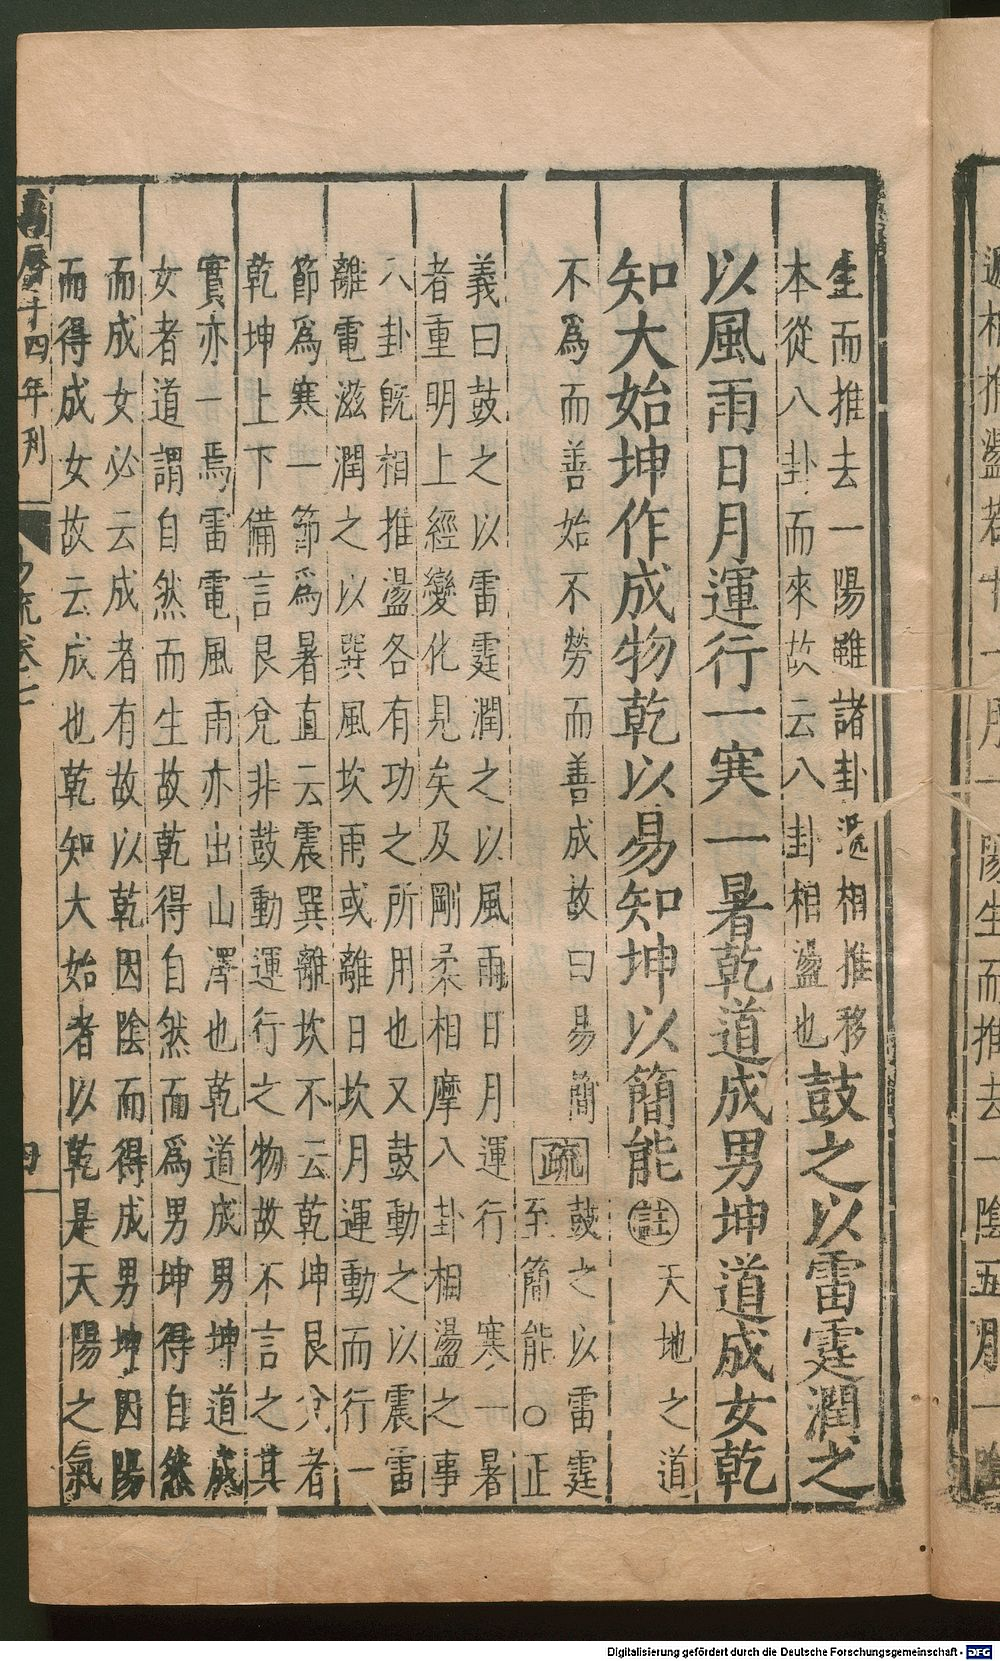 生而推去一陽雖諸卦遞相推移
本從八卦而來故云八卦相盪也
鼓之以雷霆潤之
以風雨日月運行一寒一暑乾道成男坤道成女乾
知大始坤作成物乾以易知坤以簡能
註
天地之道
不為而善始不勞而善成故曰易簡
疏
鼓之以雷霆
至簡能○正
義曰鼓之以雷霆潤之以風雨日月運行一寒一暑
者重明上經變化見矣及剛柔相摩八卦相盪之事
八卦旣相推盪各有功之所用也又鼓動之以震雷
離電滋潤之以巽風坎雨或離日坎月運動而行一
節爲寒一節爲暑直云震巽離坎不云乾坤艮兌者
乾坤上下備言艮兌非鼓動運行之物故不言之其
實亦一焉雷電風雨亦出山澤也乾道成男坤道成
女者道謂自然而生故乾得自然而爲男坤得自然
而成女必云成者有故以乾因陰而得成男坤因陽
而得成女故云成也乾知大始者以乾是天陽之氣
萬曆十四年刊
易疏卷七
四
Digitalisierung gefördert durch die Deutsche Forschungsgemeinschaft - DFG